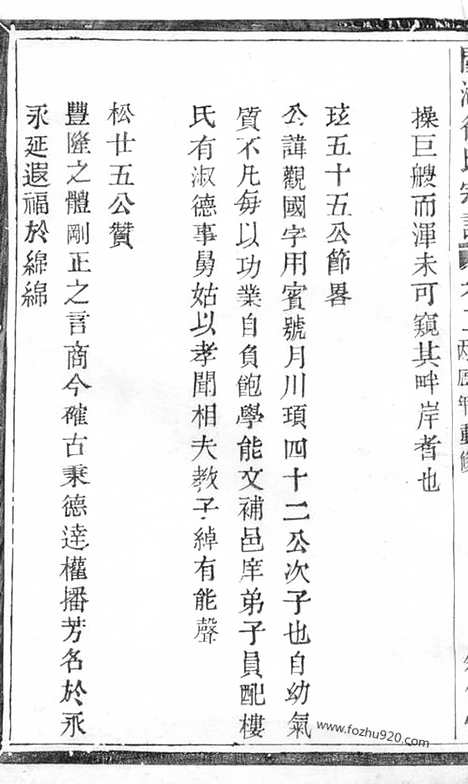 操巨艘而渾未可窺其畔岸者也
玹五十五公節畧
公諱觀國字用賓號月川項四十二公次子也自幼氣
質不凡每以功業自負飽學能文補邑庠弟子員配樓
氏有淑德事舅姑以孝聞相夫教子綽有能聲
松廿五公贊
豐隆之體剛正之言商今確古秉德達權播芳名於永
永延遐福於綿綿
www.fozhu920.com